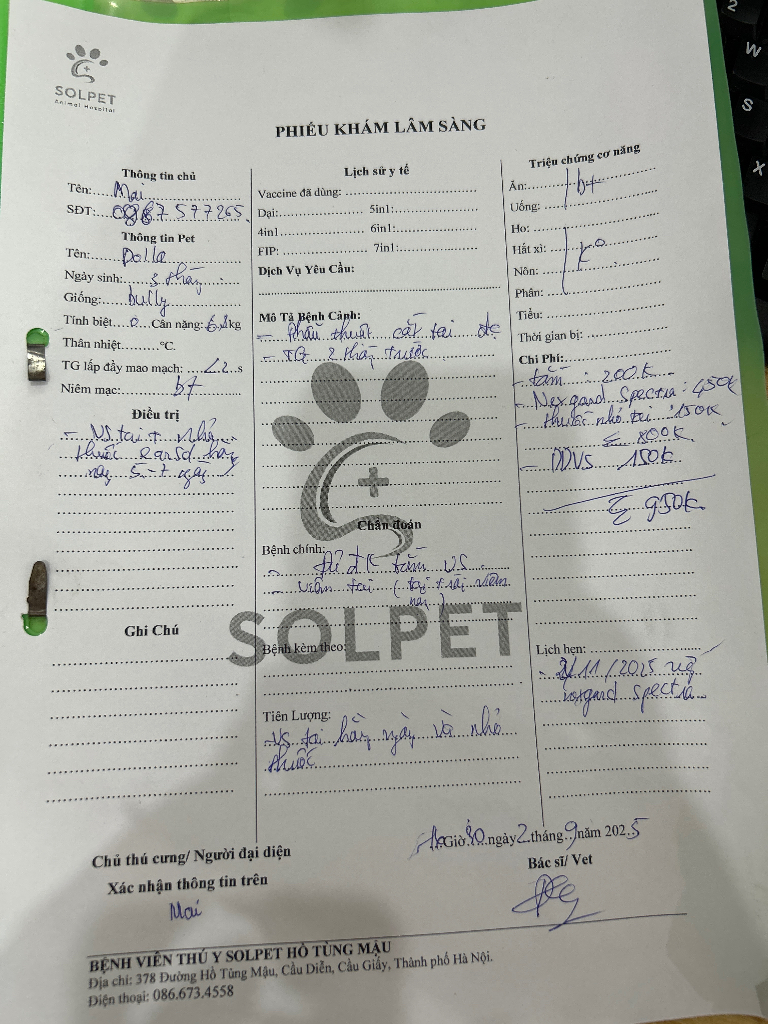 SOLPET
Animal Hospital
PHIẾU KHÁM LÂM SÀNG
Thông tin chủ
Tên: Mai
SĐT: 0987577265
Thông tin Pet
Tên: Dolla
Ngày sinh: 3 tháng
Giống: bully
Tính biệt 0 Cân nặng: 6,2kg
Thân nhiệt °C
TG lấp đầy mao mạch: <2 s
Niêm mạc: bt
Điều trị
- VS tai + nhỏ
thuốc
5-7 ngày
Ghi Chú
Lịch sử y tế
Vaccine đã dùng:
Dại: 5in1:
4in1 6in1:
FIP: 7in1:
Dịch Vụ Yêu Cầu:
Mô Tả Bệnh Cảnh:
- Phẫu thuật cắt tai
- TG 2 tháng trước
Chẩn đoán
Bệnh chính:
- Đủ đk tắm VS
- viêm tai (tai trái viêm
Bệnh kèm theo:
SOLPET
Tiên Lượng:
- VS tai hàng ngày và nhỏ
thuốc
Triệu chứng cơ năng
Ăn: bt
Uống:
Ho:
Hắt xì: ko
Nôn:
Phân:
Tiểu:
Thời gian bị:
Chi Phí:
- tắm : 200K
- Nexgard Spectra : 450K
- thuốc nhỏ tai : 150K
Σ 800K
- DDVS 150K
Σ 950K
Lịch hẹn:
/11/2025
nexgard spectra
Giờ 30 ngày 2 tháng 9 năm 2025
Bác sĩ/ Vet
Chủ thú cưng/ Người đại diện
Xác nhận thông tin trên
Mai
BỆNH VIỆN THÚ Y SOLPET HỒ TÙNG MẬU
Địa chỉ: 378 Đường Hồ Tùng Mậu, Cầu Diễn, Cầu Giấy, Thành phố Hà Nội.
Điện thoại: 086.673.4558
2
W
S
X